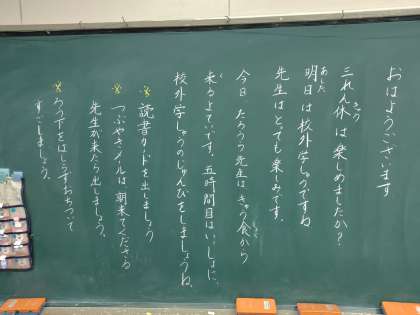 おはようございます
三れん休は楽しめましたか？
きゅう
明日は校外学しゅうですね
あした
先生はとっても楽しみです。
今日、たちうち先生はきゅう食から
しょく
来るよていです。五時間目はいっしょに、
く
校外学しゅうのじゅんびをしましょうね。
※読書カードを出しましょう
※つぶやきメイルは朝来てくださる
先生が来たら出しましょう。
※ろう下をはしらずおちついて
すごしましょう。